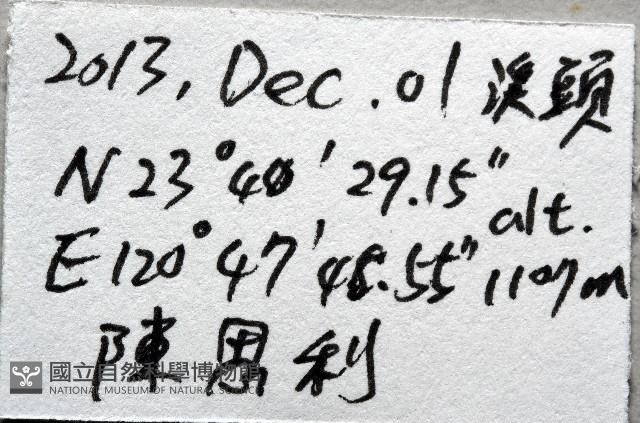 2013, Dec. 01 溪頭
N 23° 40' 29.15"
E 120° 47' 48.55" alt. 1107m
陳恩利
國立自然科學博物館
NATIONAL MUSEUM OF NATURAL SCIENCE